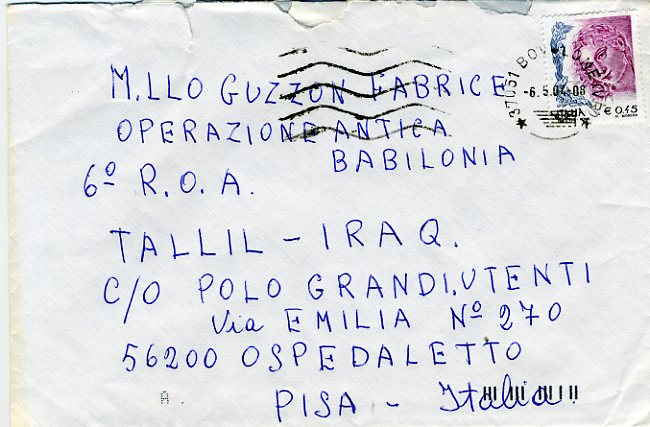 M.LLO GUZZON FABRICE
OPERAZIONE ANTICA
BABILONIA
6º R.O.A.
TALLIL - IRAQ.
C/O POLO GRANDI.UTENTI
Via EMILIA Nº 270
56200 OSPEDALETTO
PISA - Italia.
37051 BOVOLONE
-6.5.04-08
€ 0,45
A.